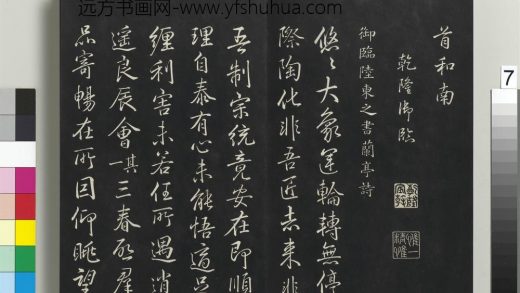 远方书画网-www.yfshuhua.com
7
首和南
乾隆御臨
乾隆宸翰
惟精惟一
御臨陸柬之書蘭亭詩
悠〻大象運輪轉無停
際陶化非吾匠去來非
吾制宗統竟安在即順
理自泰有心未能悟適只
纏利害未若任所遇逍
遙良辰會其一三春啟羣
品寄暢在所因仰眺望